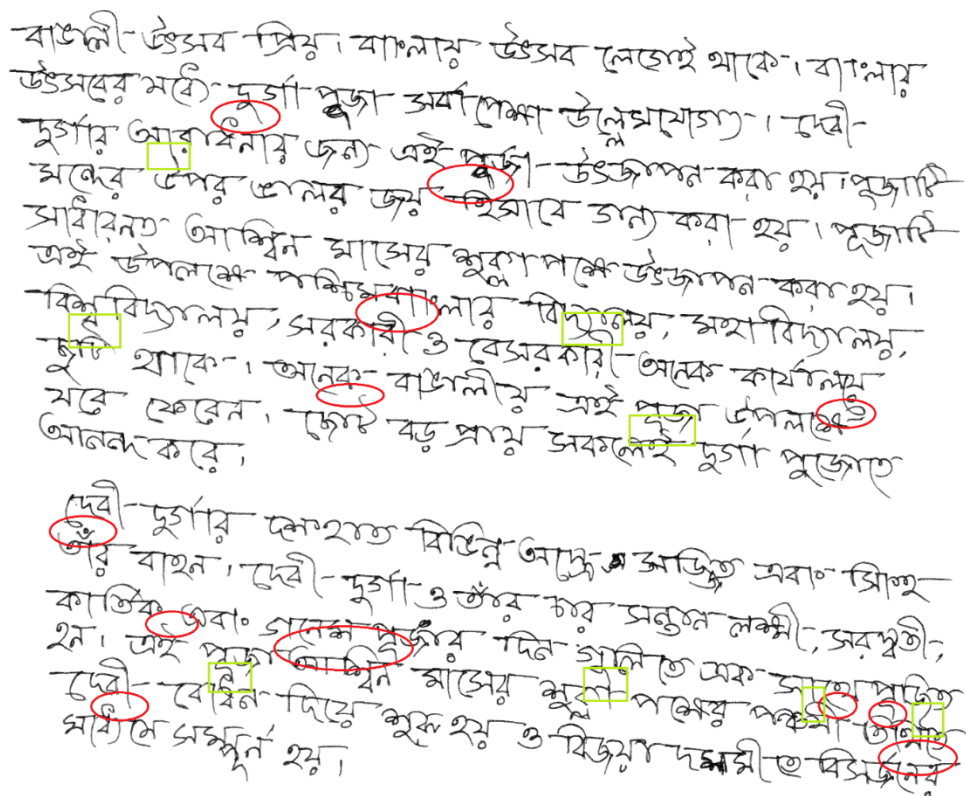 বাঙালী উৎসব প্রিয়। বাংলায় উৎসব লেগেই থাকে। বাংলায়
উৎসবের মধ্যে দুর্গা পূজা সর্বাপেক্ষা উল্লেখযোগ্য। দেবী
দুর্গার আরাধনায় জন্য এই পূজা উৎজাপন করা হয়। পূজাটি
মন্দের উপর ভালর জয় হিসাবে গন্য করা হয়। পূজাটি
সাধারনত আশ্বিন মাসের শুক্ল পক্ষে উৎজাপন করা হয়।
এই উপলক্ষে পশ্চিমবাংলায় বিদ্যালয়, মহাবিদ্যালয়,
বিশ্ববিদ্যালয়, সরকারী ও বেসরকারী অনেক কার্যালয়
ছুটি থাকে। অনেক বাঙালীয় এই পূজা উপলক্ষে
ঘরে ফেরেন। ছোট বড় প্রায় সকলেই দুর্গা পুজোতে
আনন্দ করে।
দেবী দুর্গার দশ হাত বিভিন্ন অস্ত্রে সজ্জিত এবং সিংহ
তাঁর বাহন। দেবী দুর্গা ও তাঁর চার সন্তান লক্ষ্মী, সরস্বতী,
কার্তিক এবং গনেশ পূজার দিন গুলিতে এক সাথে পূজিত
হন। এই পূজা আশ্বিন মাসের শুক্ল পক্ষের পঞ্চমী
দেবী বোধন দিয়ে শুরু হয় ও বিজয়া দশমীতে বিসর্জনের
মাধ্যমে সম্পূর্ন হয়।